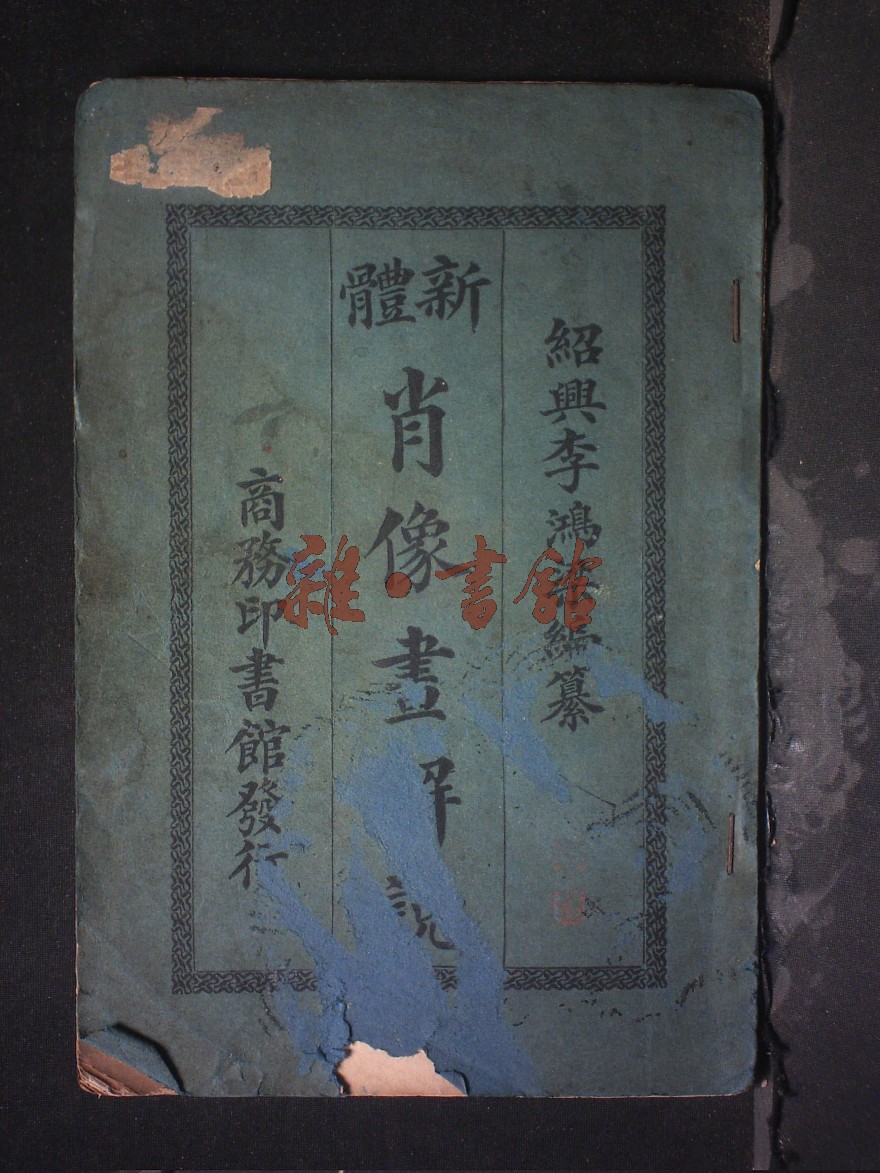 紹興李鴻 編纂
新體
肖像畫解說
商務印書館發行
雜·書館